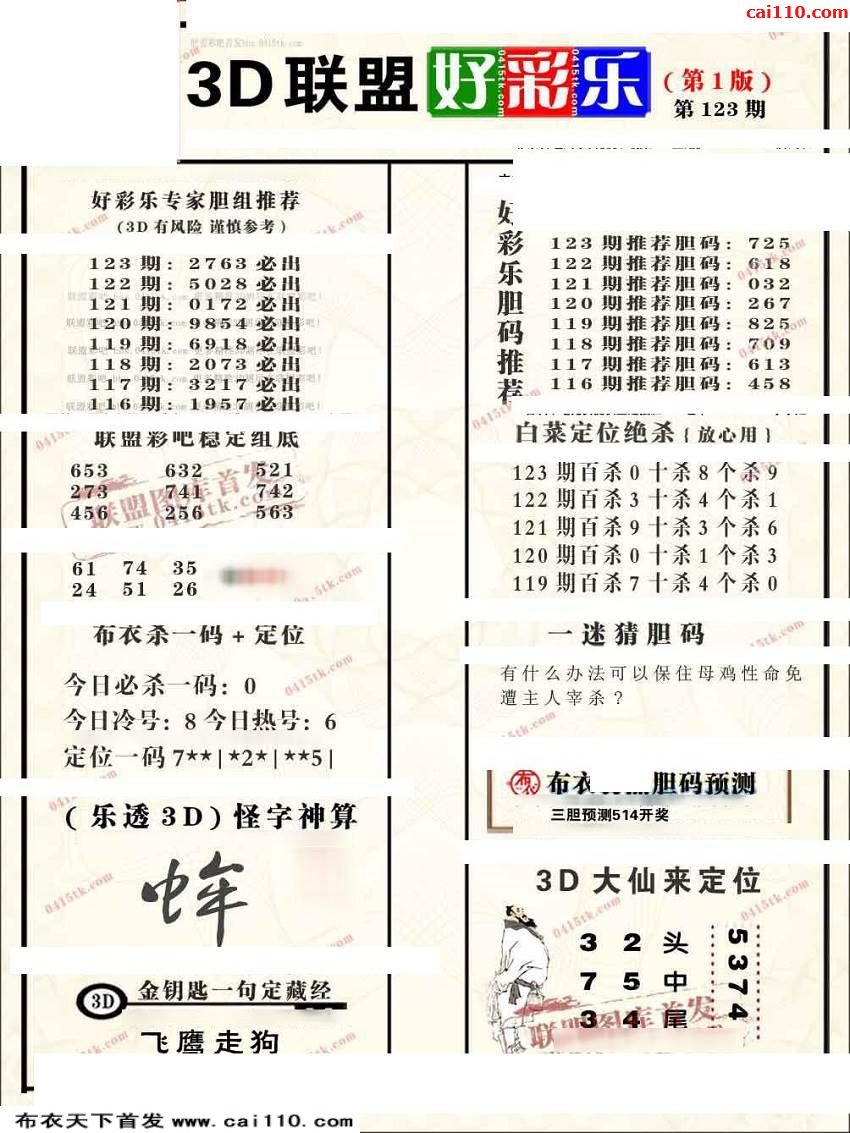 cai110.com
3D 联盟 好彩乐 (第1版)
第 123 期
好彩乐专家胆组推荐
(3D 有风险 谨慎参考)
123 期: 2763 必出
122 期: 5028 必出
121 期: 0172 必出
120 期: 9854 必出
119 期: 6918 必出
118 期: 2073 必出
117 期: 3217 必出
116 期: 1957 必出
联盟彩吧稳定组底
653 632 521
273 741 742
456 256 563
61 74 35
24 51 26
布衣杀一码 + 定位
今日必杀一码: 0
今日冷号: 8 今日热号: 6
定位一码 7**|*2*|**5|
(乐透 3D) 怪字神算
3D 金钥匙一句定藏经
飞鹰走狗
好彩乐胆码推荐
123 期推荐胆码: 725
122 期推荐胆码: 618
121 期推荐胆码: 032
120 期推荐胆码: 267
119 期推荐胆码: 825
118 期推荐胆码: 709
117 期推荐胆码: 613
116 期推荐胆码: 458
白菜定位绝杀 { 放心用 }
123 期百杀 0 十杀 8 个杀 9
122 期百杀 3 十杀 4 个杀 1
121 期百杀 9 十杀 3 个杀 6
120 期百杀 0 十杀 1 个杀 3
119 期百杀 7 十杀 4 个杀 0
一迷猜胆码
有什么办法可以保住母鸡性命免
遭主人宰杀?
布衣 胆码预测
三胆预测514开奖
3D 大仙来定位
3 2 头
7 5 中
3 4 尾
5374
联盟图库首发
0415tk.com
布衣天下首发 www.cai110.com